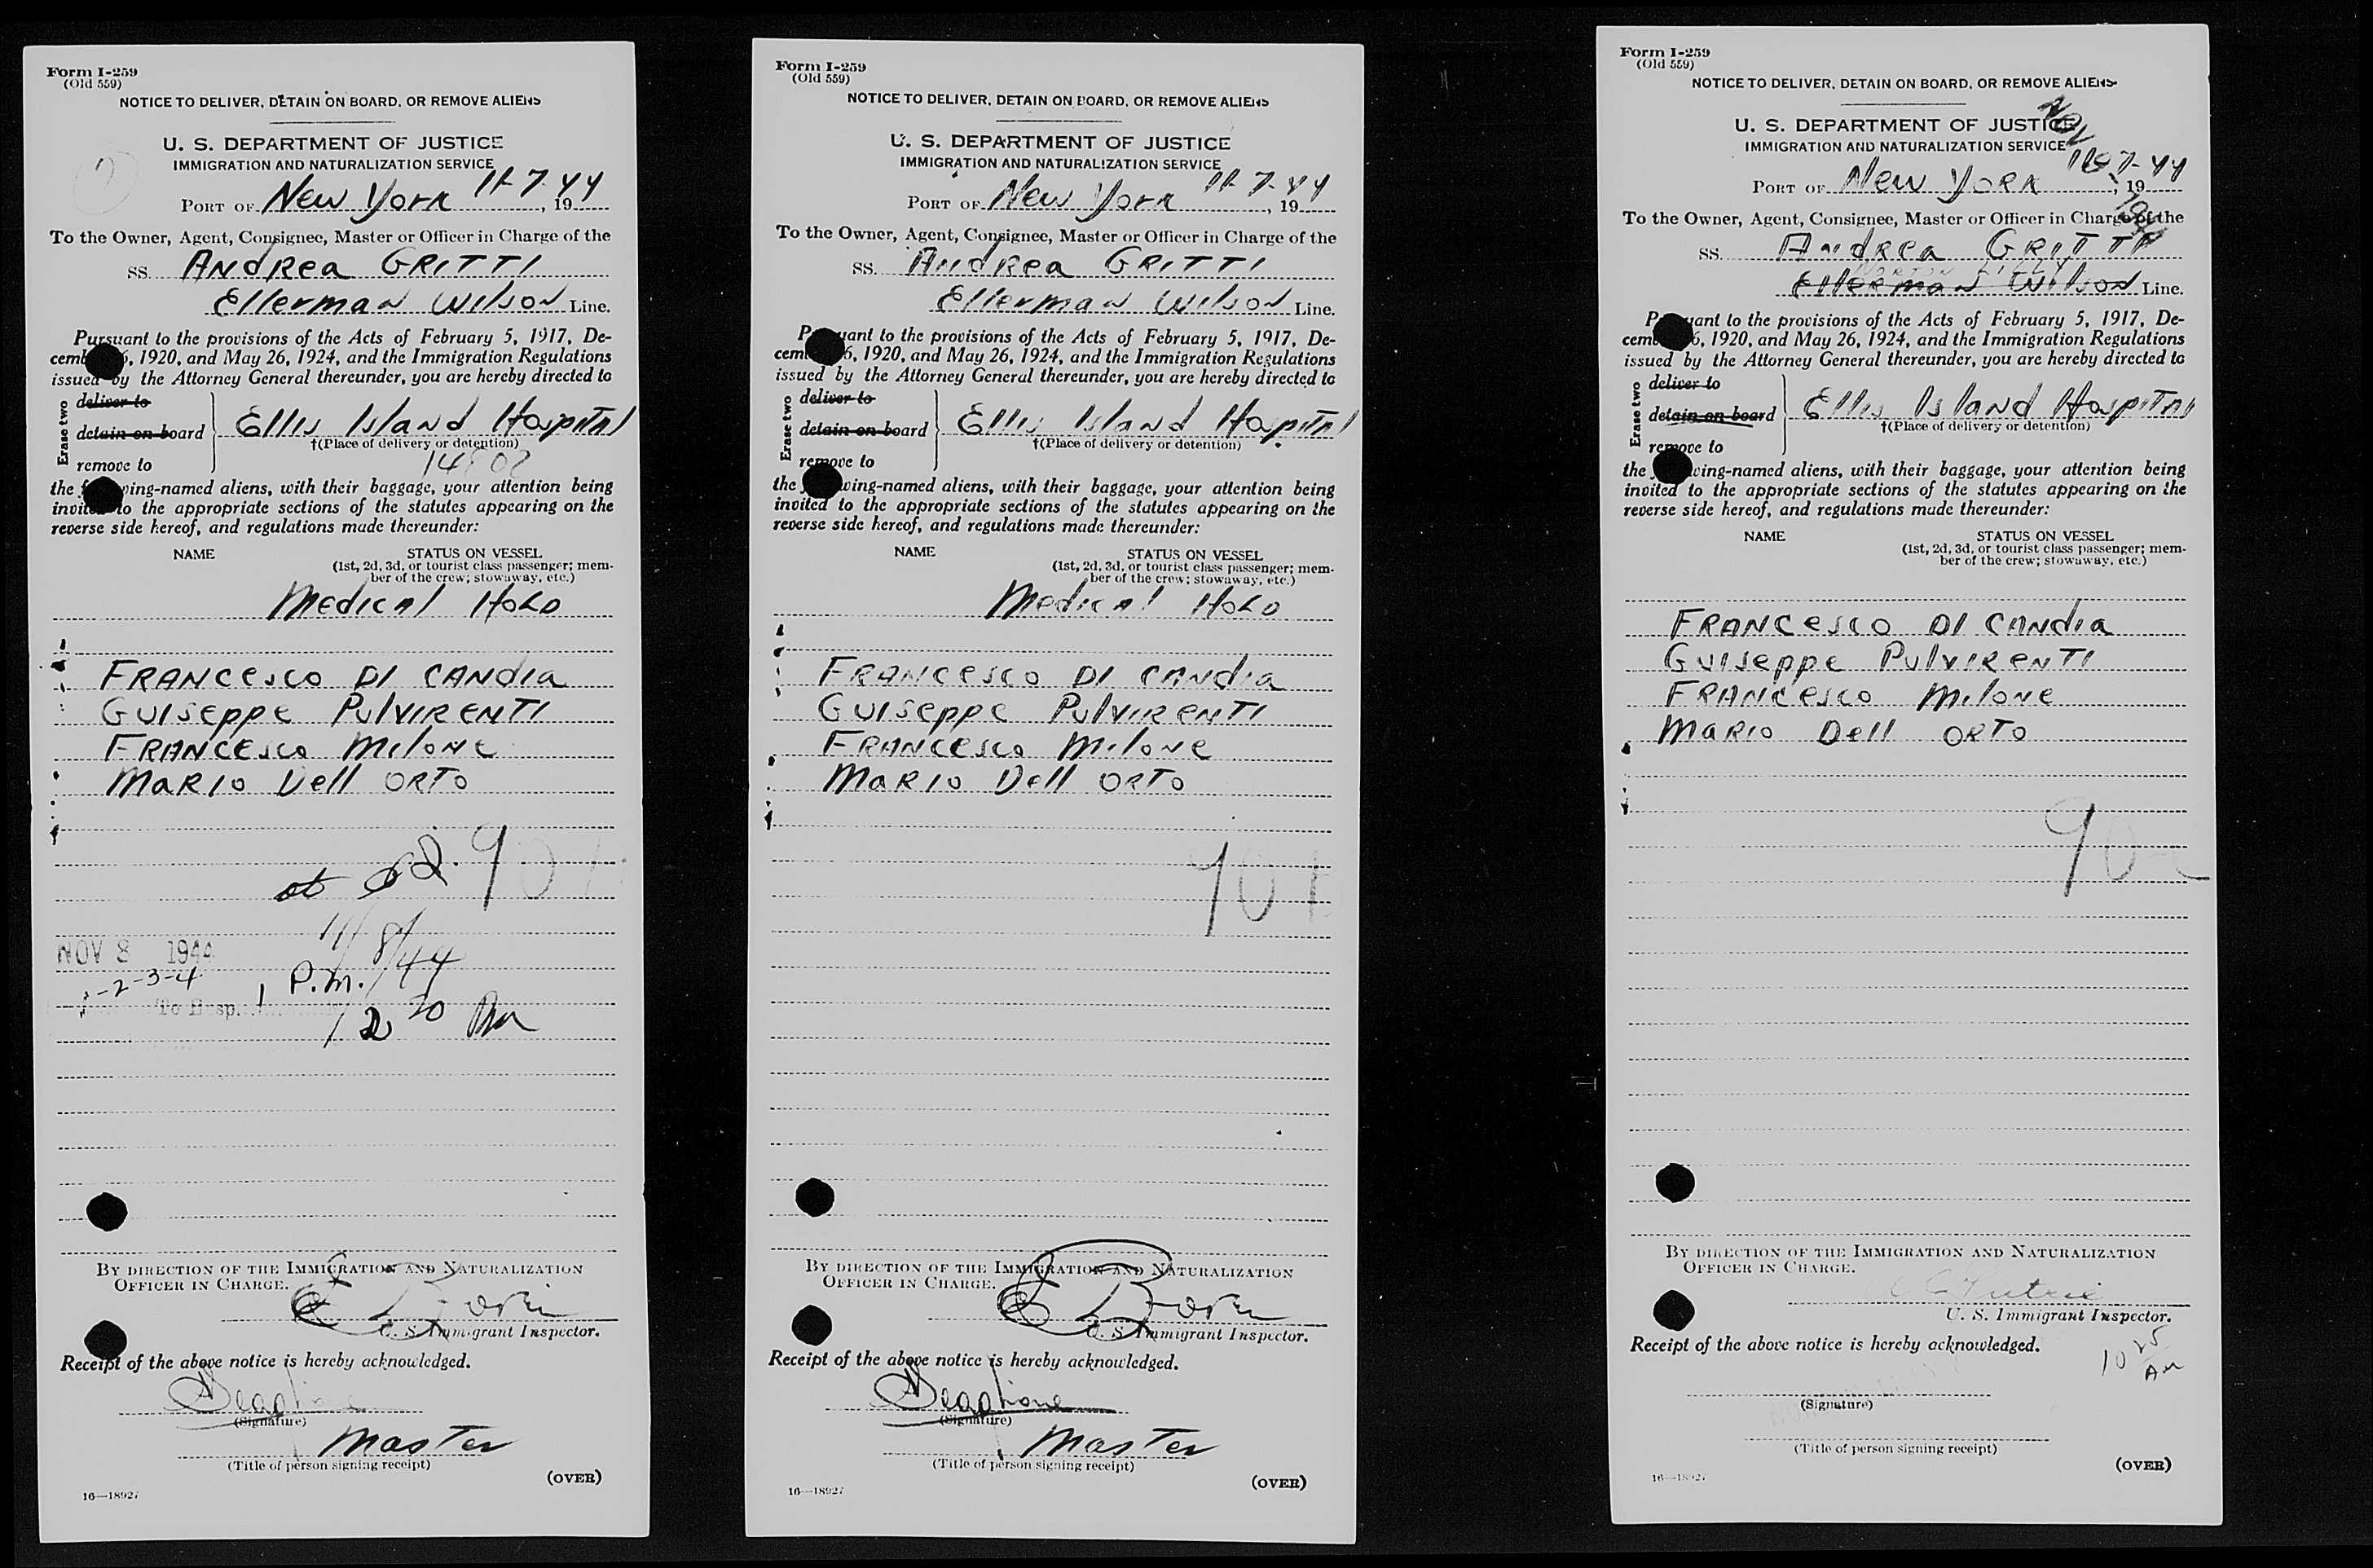 Form I-259
(Old 559)
NOTICE TO DELIVER, DETAIN ON BOARD, OR REMOVE ALIENS
U. S. DEPARTMENT OF JUSTICE
IMMIGRATION AND NATURALIZATION SERVICE
PORT OF New York 11-7-44, 19
To the Owner, Agent, Consignee, Master or Officer in Charge of the
SS. ANdRea GRITTI
Ellerman Wilson Line.
Pursuant to the provisions of the Acts of February 5, 1917, De-
cemb 6, 1920, and May 26, 1924, and the Immigration Regulations
issued by the Attorney General thereunder, you are hereby directed to
Erase two
deliver to
detain on board
remove to
Ellis Island Hospital
†(Place of delivery or detention)
the f wing-named aliens, with their baggage, your attention being
invited to the appropriate sections of the statutes appearing on the
reverse side hereof, and regulations made thereunder:
NAME STATUS ON VESSEL
(1st, 2d, 3d, or tourist class passenger; mem-
ber of the crew; stowaway, etc.)
Medical Hold
FRANCesco DI CANdia
GUISeppe PulVIRENTI
FRANCESCO MiloNe
MaRIO Dell ORTO
90
11/8/44
NOV 8 1944
1-2-3-4 P.M.
To Hosp.
2 20 PM
BY DIRECTION OF THE IMMIGRATION AND NATURALIZATION
OFFICER IN CHARGE.
U. S. Immigrant Inspector.
Receipt of the above notice is hereby acknowledged.
(Signature)
Master
(Title of person signing receipt)
(OVER)
16—18927
Form I-259
(Old 559)
NOTICE TO DELIVER, DETAIN ON BOARD, OR REMOVE ALIENS
U. S. DEPARTMENT OF JUSTICE
IMMIGRATION AND NATURALIZATION SERVICE
PORT OF New York 11-7-44, 19
To the Owner, Agent, Consignee, Master or Officer in Charge of the
SS. ANdRea GRITTI
Ellerman Wilson Line.
P uant to the provisions of the Acts of February 5, 1917, De-
cem 6, 1920, and May 26, 1924, and the Immigration Regulations
issued by the Attorney General thereunder, you are hereby directed to
Erase two
deliver to
detain on board
remove to
Ellis Island Hospital
†(Place of delivery or detention)
the wing-named aliens, with their baggage, your attention being
invited to the appropriate sections of the statutes appearing on the
reverse side hereof, and regulations made thereunder:
NAME STATUS ON VESSEL
(1st, 2d, 3d, or tourist class passenger; mem-
ber of the crew; stowaway, etc.)
Medical Hold
FRANCesco DI CANdia
GUISeppe PulVIRENTI
FRANCesco MiloNe
MaRIO Dell ORTO
901
BY DIRECTION OF THE IMMIGRATION AND NATURALIZATION
OFFICER IN CHARGE.
U. S. Immigrant Inspector.
Receipt of the above notice is hereby acknowledged.
(Signature)
Master
(Title of person signing receipt)
(OVER)
16—18927
Form I-259
(Old 559)
NOTICE TO DELIVER, DETAIN ON BOARD, OR REMOVE ALIENS
U. S. DEPARTMENT OF JUSTICE
IMMIGRATION AND NATURALIZATION SERVICE
NOV 1944
PORT OF New YORK 11-7-44, 19
To the Owner, Agent, Consignee, Master or Officer in Charge of the
SS. ANdRea GRITTI
NORTON LILLY
Ellerman Wilson Line.
P uant to the provisions of the Acts of February 5, 1917, De-
cem 6, 1920, and May 26, 1924, and the Immigration Regulations
issued by the Attorney General thereunder, you are hereby directed to
Erase two
deliver to
detain on board
remove to
Ellis Island Hospital
†(Place of delivery or detention)
the wing-named aliens, with their baggage, your attention being
invited to the appropriate sections of the statutes appearing on the
reverse side hereof, and regulations made thereunder:
NAME STATUS ON VESSEL
(1st, 2d, 3d, or tourist class passenger; mem-
ber of the crew; stowaway, etc.)
FRANCesco DI CANdia
GUISeppe PulVIRENTI
FRANCesco MiloNe
MaRIO Dell ORTO
90
BY DIRECTION OF THE IMMIGRATION AND NATURALIZATION
OFFICER IN CHARGE.
U. S. Immigrant Inspector.
Receipt of the above notice is hereby acknowledged.
10 25 AM
(Signature)
(Title of person signing receipt)
(OVER)
16—18927